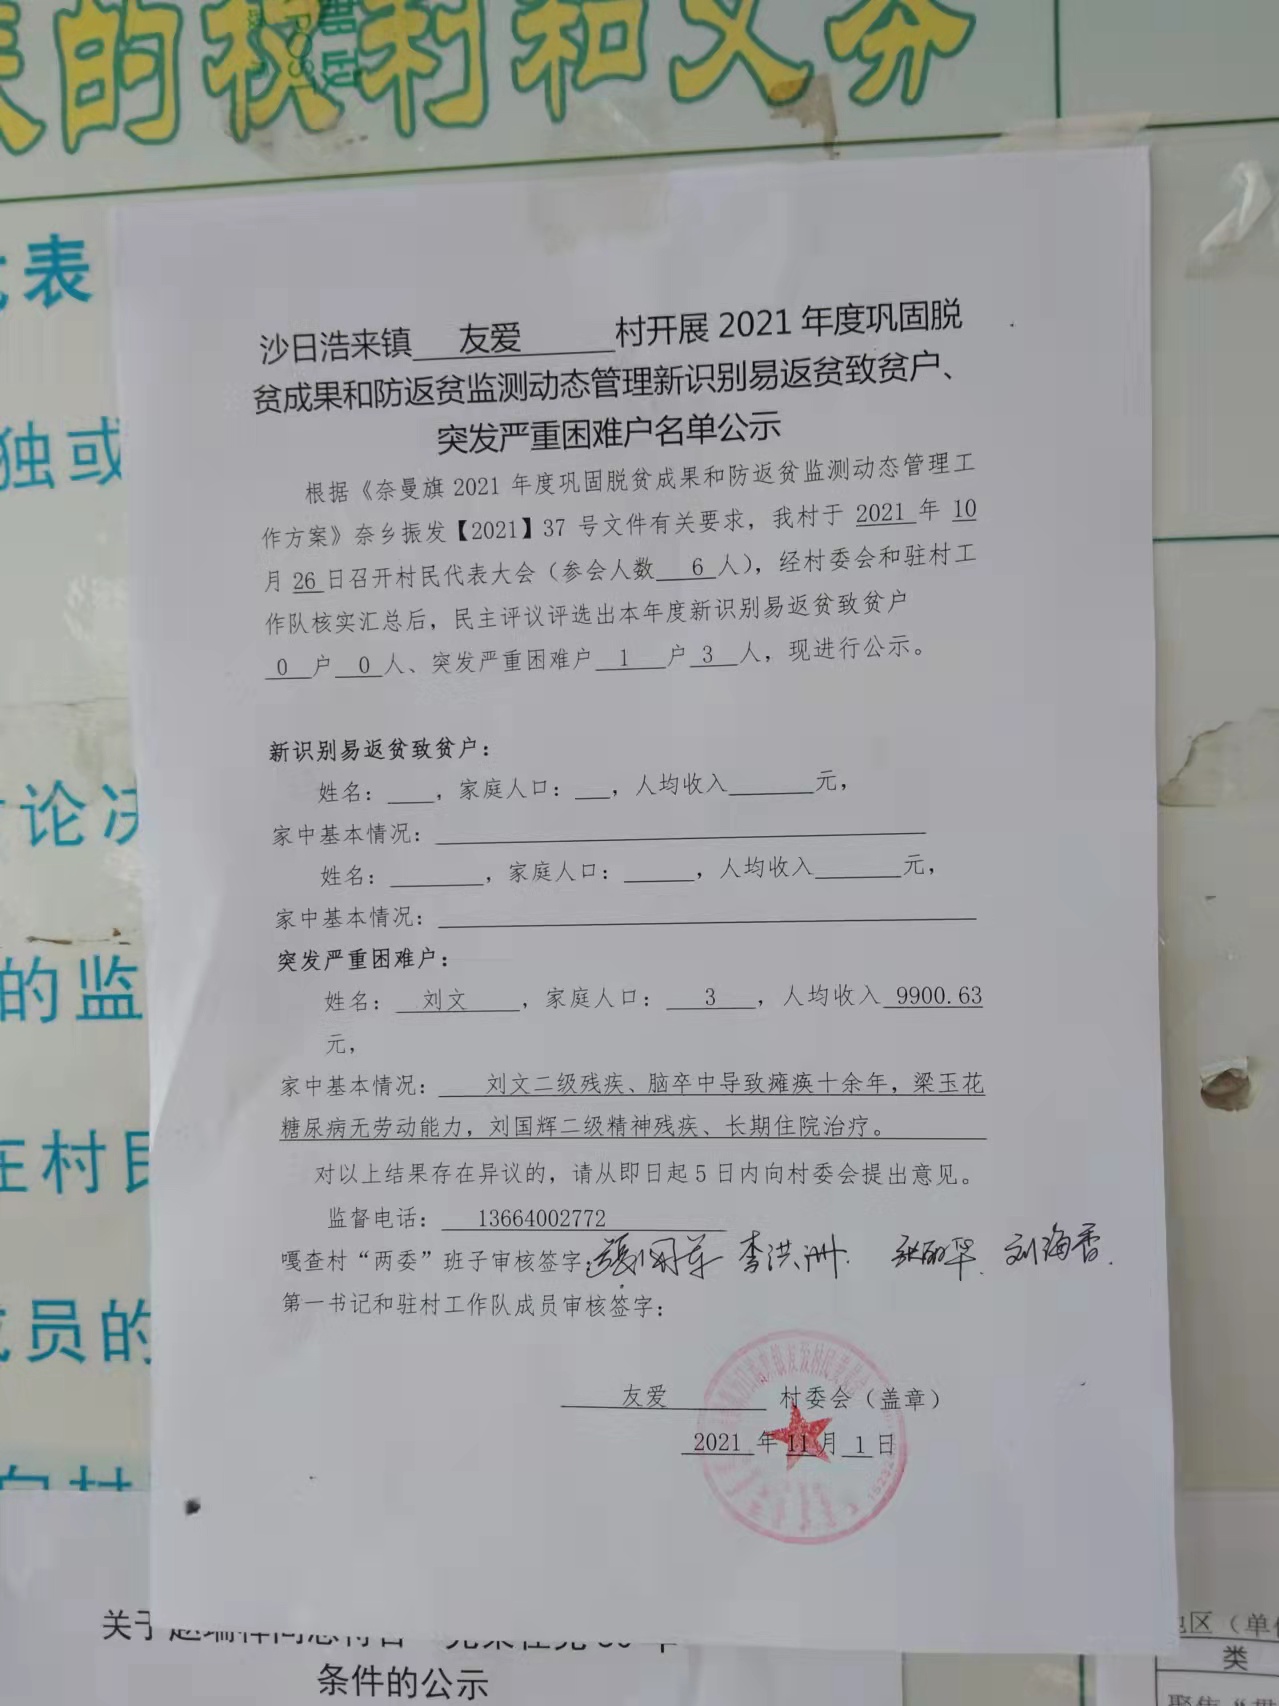 的权利和义务
表
沙日浩来镇 友爱 村开展 2021 年度巩固脱
贫成果和防返贫监测动态管理新识别易返贫致贫户、
突发严重困难户名单公示
根据《奈曼旗 2021 年度巩固脱贫成果和防返贫监测动态管理工
作方案》奈乡振发【2021】37 号文件有关要求，我村于 2021 年 10
月 26 日召开村民代表大会（参会人数 6 人），经村委会和驻村工
作队核实汇总后，民主评议评选出本年度新识别易返贫致贫户
0 户 0 人、突发严重困难户 1 户 3 人，现进行公示。
新识别易返贫致贫户：
姓名：____，家庭人口：___，人均收入_______元，
家中基本情况：
姓名：________，家庭人口：______，人均收入_______元，
家中基本情况：
突发严重困难户：
姓名： 刘文 ，家庭人口： 3 ，人均收入 9900.63
元，
家中基本情况： 刘文二级残疾、脑卒中导致瘫痪十余年，梁玉花
糖尿病无劳动能力，刘国辉二级精神残疾、长期住院治疗。
对以上结果存在异议的，请从即日起 5 日内向村委会提出意见。
监督电话： 13664002772
嘎查村“两委”班子审核签字： 李洪洲 刘海香
第一书记和驻村工作队成员审核签字：
友爱 村委会（盖章）
2021 年 11 月 1 日
独或
论决
的监
在村民
成员的
向村
条件的公示
地区（单
类